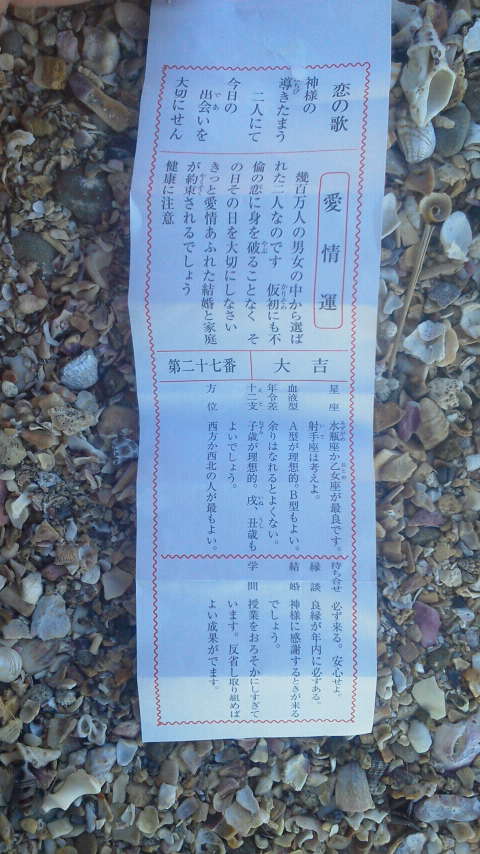 恋の歌
神様の
導きたまう
二人にて
今日の
出会いを
大切にせん
愛情運
幾百万人の男女の中から選ば
れた二人なのです 仮初にも不
倫の恋に身を破ることなく そ
の日その日を大切にしなさい
きっと愛情あふれた結婚と家庭
が約束されるでしょう
健康に注意
大吉
第二十七番
星座 水瓶座か乙女座が最良です。
射手座は考えよ。
血液型 A型が理想的。B型もよい。
年令差 余りはなれるとよくない。
十二支 子歳が理想的。戌、丑歳も
よいでしょう。
方位 西方か西北の人が最もよい。
待ち合せ 必ず来る。安心せよ。
縁談 良縁が年内に必ずある。
結婚 神様に感謝するときが来る
でしょう。
学問 授業をおろそかにしすぎて
います。反省し取り組めば
よい成果がでます。